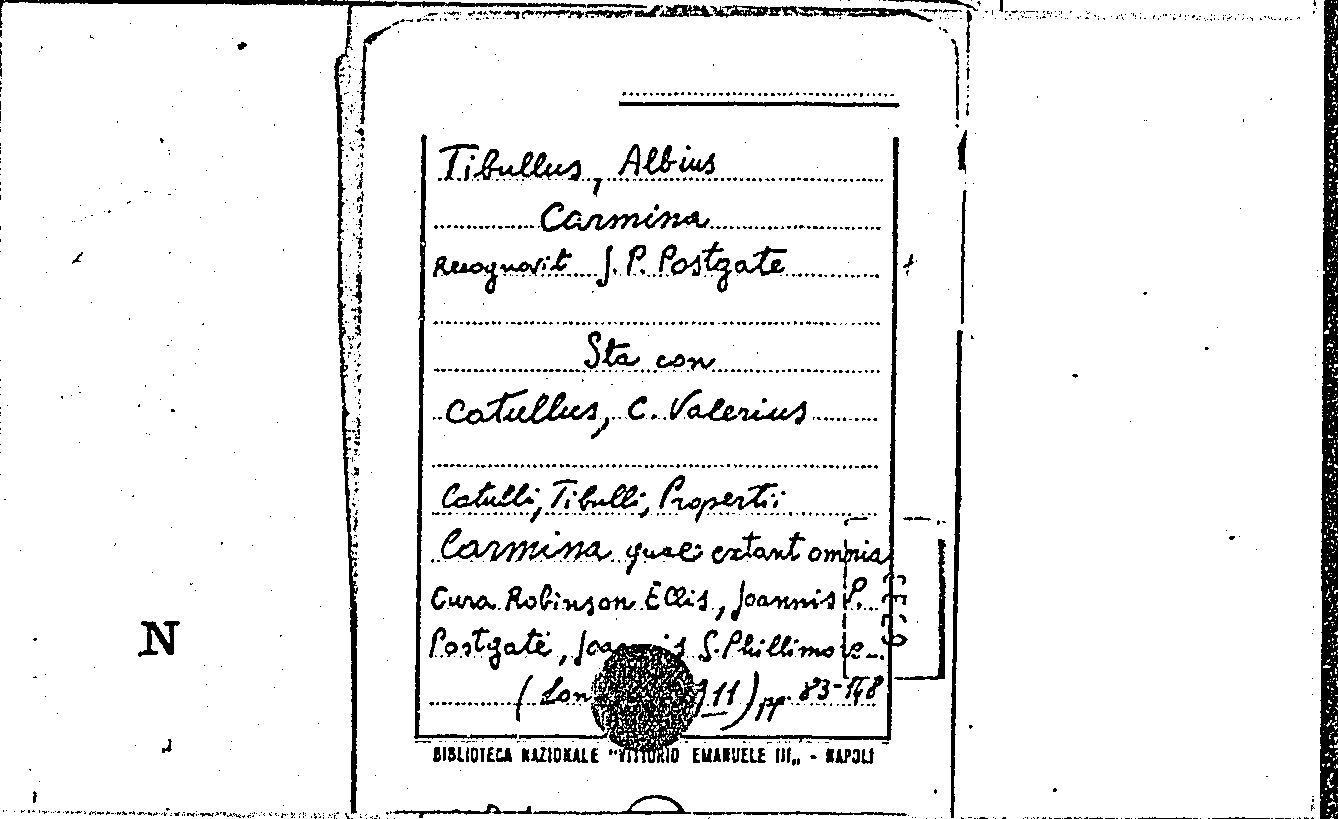 Tibullus, Albius
Carmina
Recognovit J. P. Postgate
Sta con
Catullus, C. Valerius
Catulli, Tibulli, Propertii
Carmina quae extant omnia
Cura Robinson Ellis, Joannis P.
Postgate, S. Phillimore
(Lon 11) pp. 83-148
BIBLIOTECA NAZIONALE "VITTORIO EMANUELE III„ - NAPOLI
N